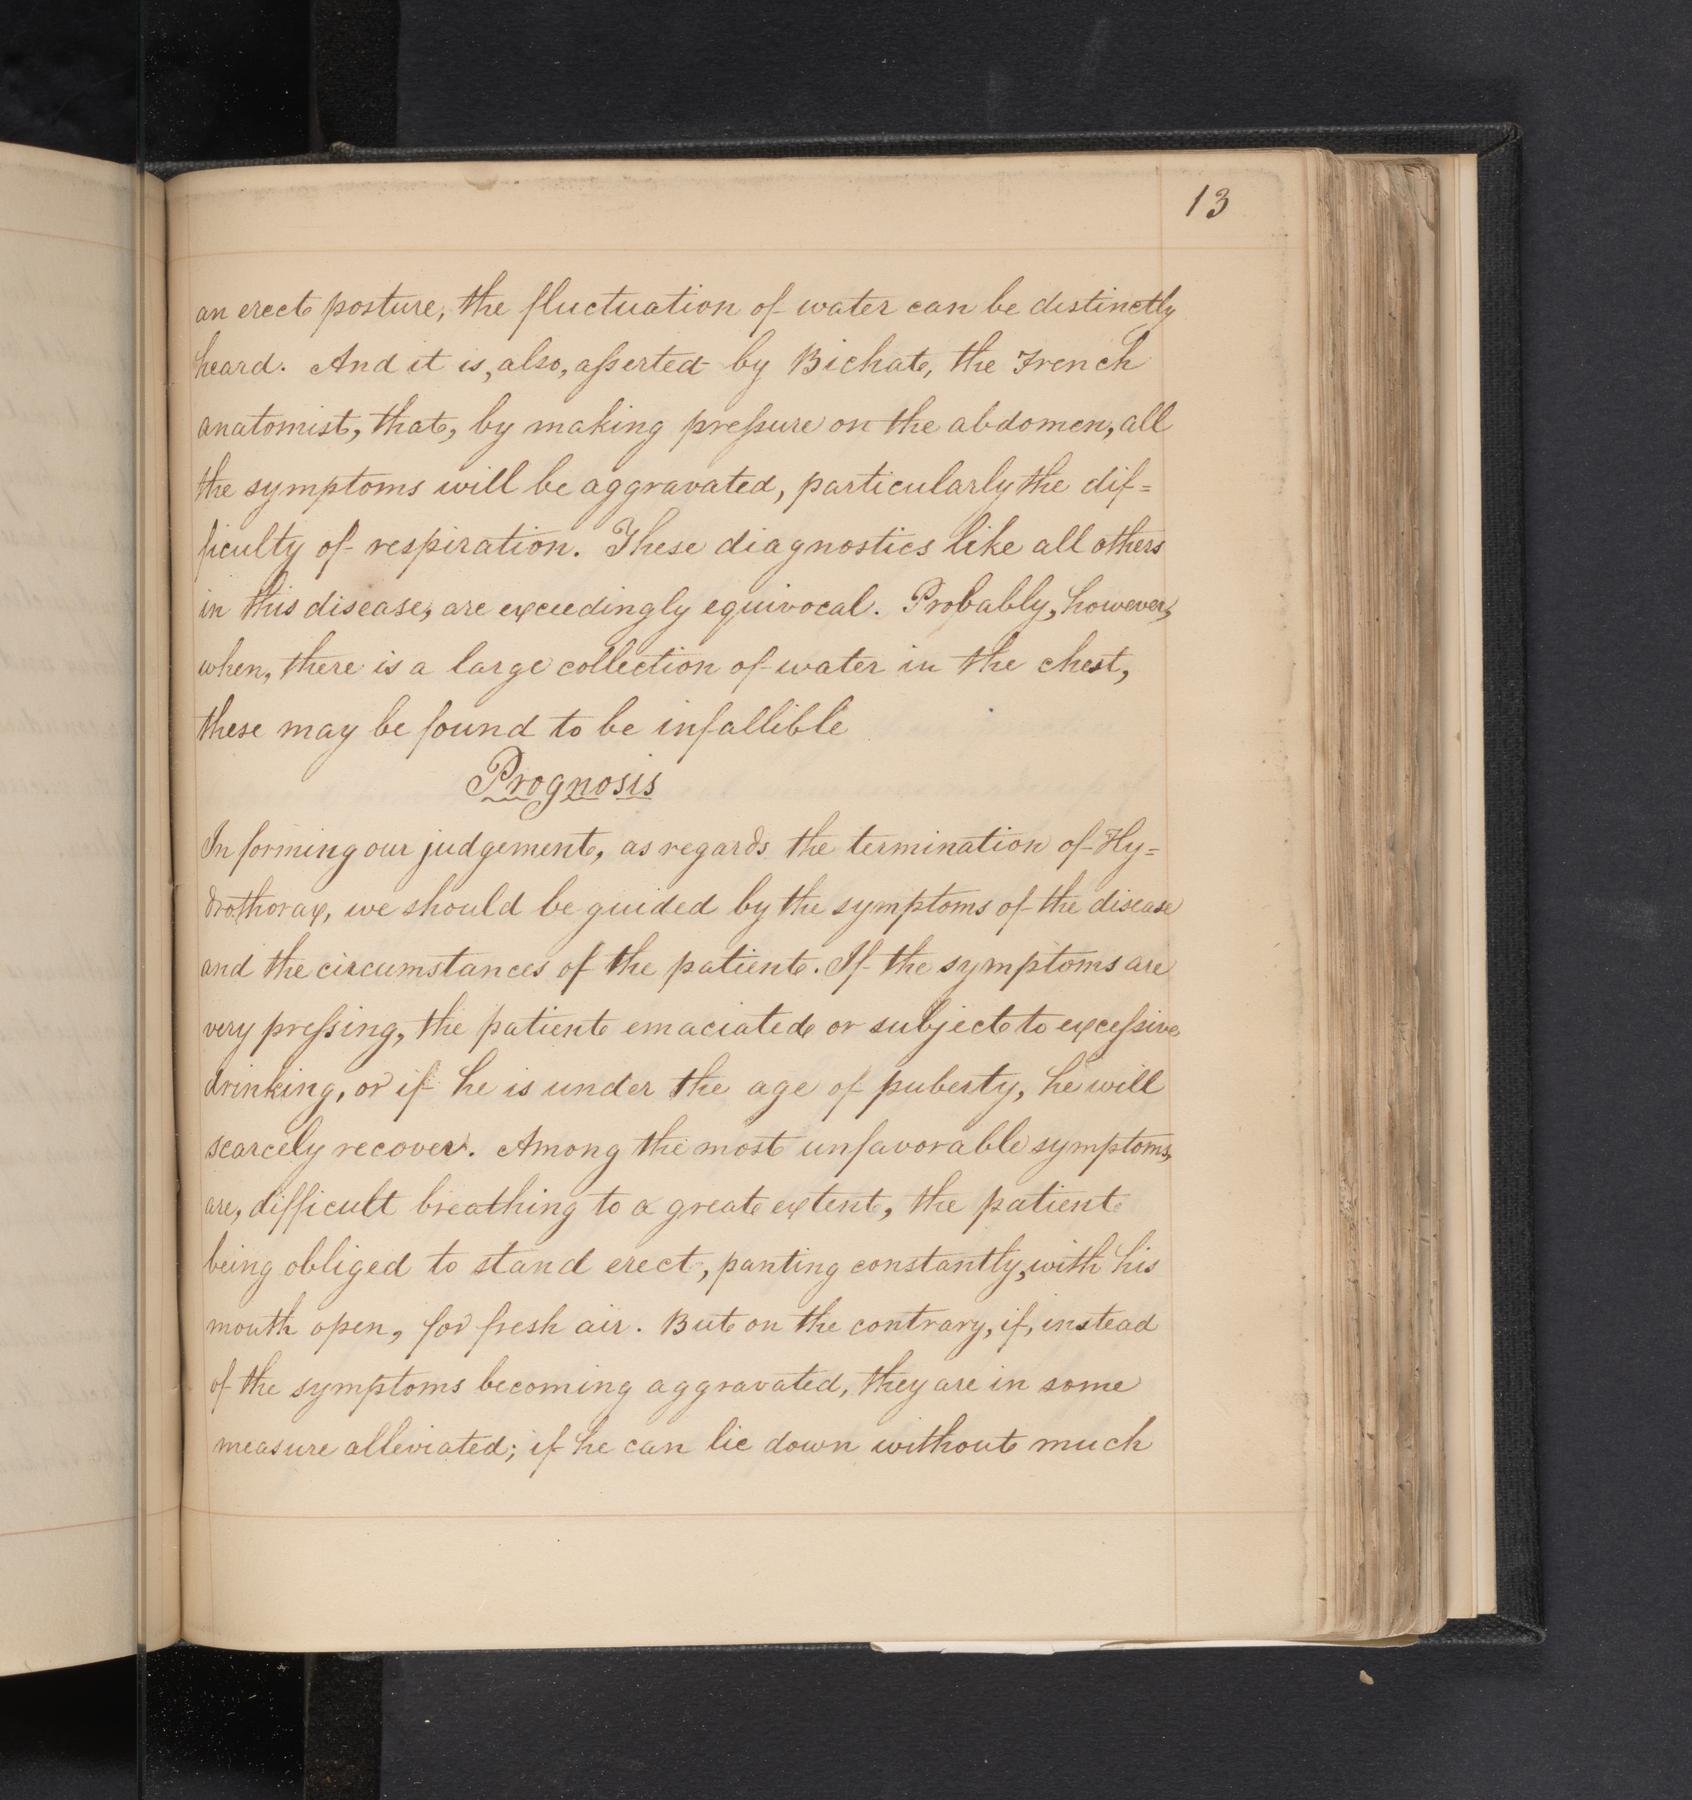 13
an erect posture, the fluctuation of water can be distinctly
heard. And it is, also, aſserted by Bichat, the French
anatomist, that, by making preſsure on the abdomen, all
the symptoms will be aggravated, particularly the dif=
ficulty of respiration. These diagnostics like all others
in this disease, are exceedingly equivocal. Probably, however,
when, there is a large collection of water in the chest,
these may be found to be infallible
Prognosis
In forming our judgement, as regards the termination of Hy=
drothorax, we should be guided by the symptoms of the disease
and the circumstances of the patient. If the symptoms are
very preſsing, the patient emaciated or subject to exceſsive
drinking, or if he is under the age of puberty, he will
scarcely recover. Among the most unfavorable symptoms,
are, difficult breathing to a great extent, the patient
being obliged to stand erect, panting constantly, with his
mouth open, for fresh air. But on the contrary, if, instead
of the symptoms becoming aggravated, they are in some
measure alleviated; if he can lie down without much